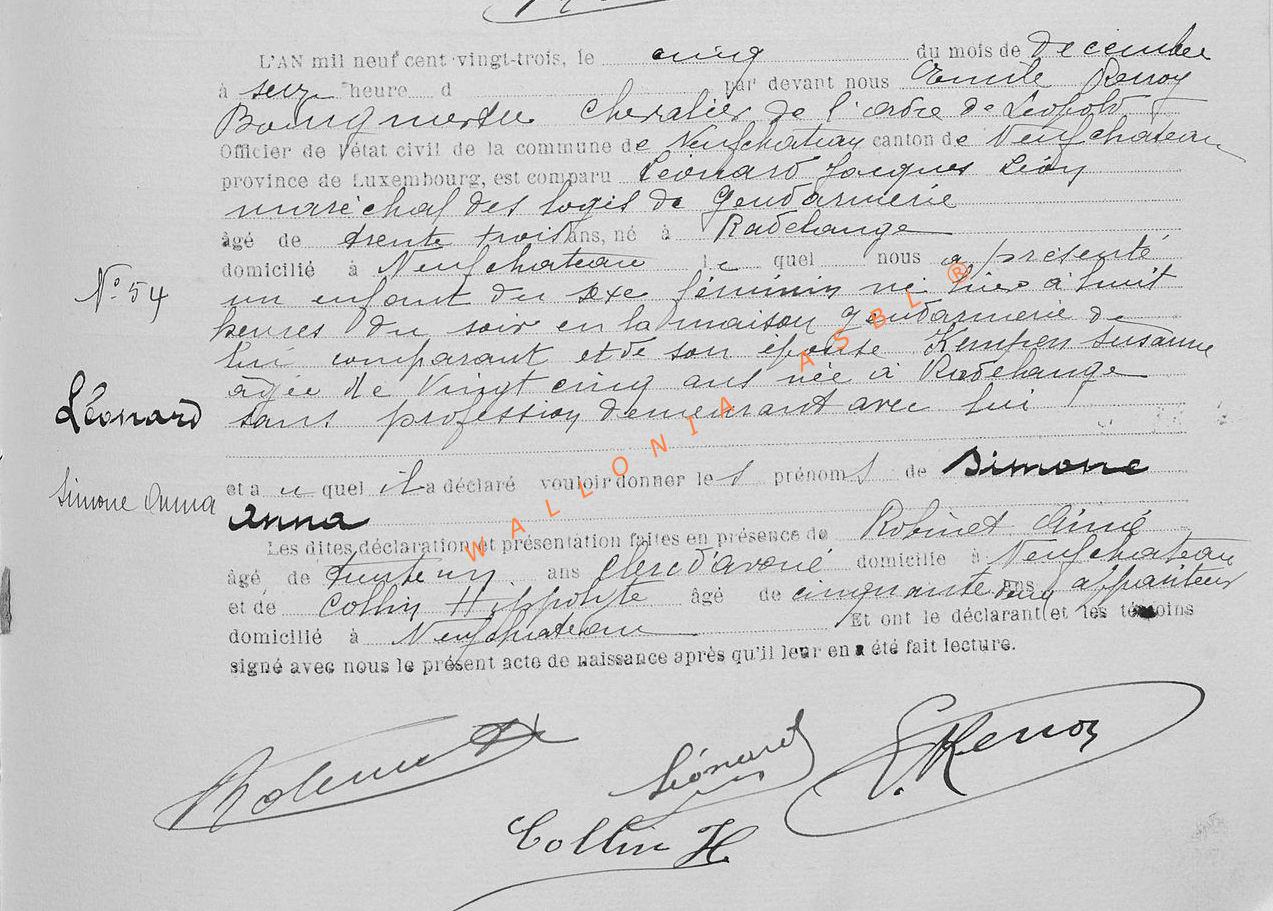 L'AN mil neuf cent vingt-trois, le cinq du mois de décembre
à seize heure d par devant nous Emile Renoy
Bourgmestre Chevalier de l'ordre de Léopold
Officier de l'état civil de la commune de Neufchateau canton de Neufchateau
province de Luxembourg, est comparu Léonard Jacques Léon
maréchal des logis de Gendarmerie
âgé de trente trois ans, né à Radelange
domicilié à Neufchateau le quel nous a présenté
N° 54
un enfant du sexe féminin né hier à huit
heures du soir en la maison gendarmerie de
lui comparant et de son épouse Kempen Susanne
agée de vingt cinq ans née à Radelange
Léonard
sans profession demeurant avec lui
Simone Anna
et a u quel il a déclaré vouloir donner le s prénom s de Simone
Anna
Les dites déclaration et présentation faites en présence de Robinet Aimé
âgé de trente un ans clerc d'avoué domicilié à Neufchateau
et de Collin Hippolyte âgé de cinquante cinq ans appariteur
domicilié à Neufchateau Et ont le déclarant et les témoins
signé avec nous le présent acte de naissance après qu'il leur en a été fait lecture.
Léonard
E. Renoy
Collin H
WALLONIA ASBL ®